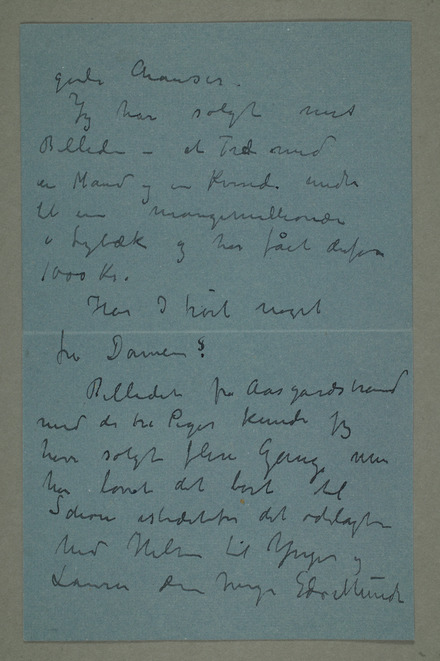 Jeg har solgt mit
Billede – et Træ med
en Mand og en Kvinde under
til en mangemillionær
i Lybæk og har fået derfor
1000 Kr.
Har I hørt noget
fra Damen?
Billedet fra Aasgaardstrand
med de tre Piger kunde jeg
have solgt flere Gang men
har lovet det bort til
det
Med Hilsen til og
Edv Munch